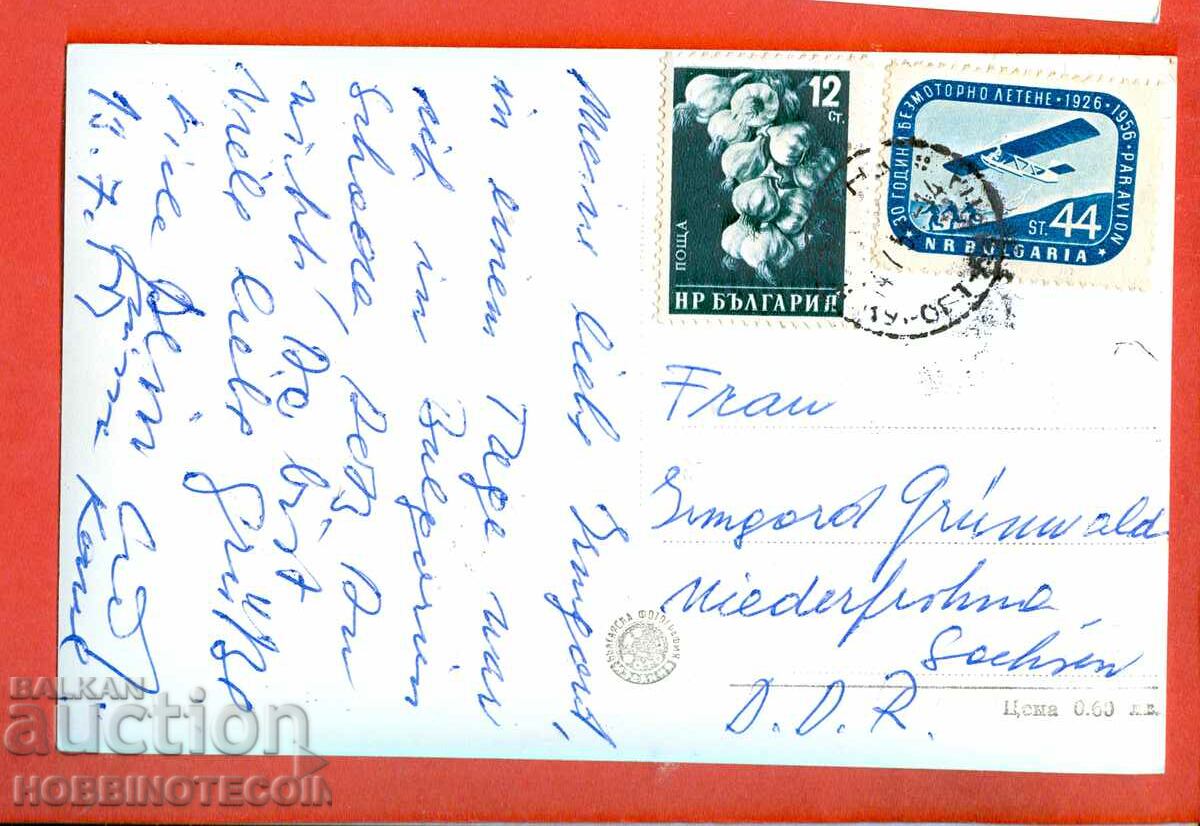 Meine liebe Irmgard,
in einem Tage nur
ich in Bulgarien
Schade, daß Du
nicht, da bist
Viele liebe Grüße
Dein
12
СТ.
ПОЩА
НР БЪЛГАРИЯ
30 ГОДИНИ БЕЗМОТОРНО ЛЕТЕНЕ · 1926 · 1956 · PAR AVION
ST. 44
N.R. BULGARIA
Frau
Irmgard Grünwald
Niederfrohna
Sachsen
D. D. R.
БЪЛГАРСКА ФОТОГРАФИЯ
Цена 0.60 лв.
BALKAN
auction
HOBBINOTECOIN